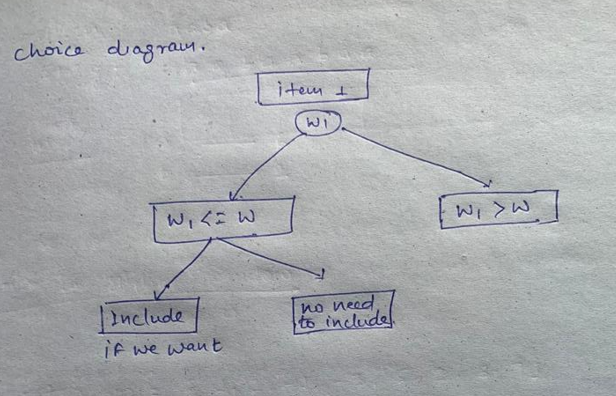 choice diagram.
item 1
W1
W1 <= W
W1 > W
Include
if we want
no need
to include